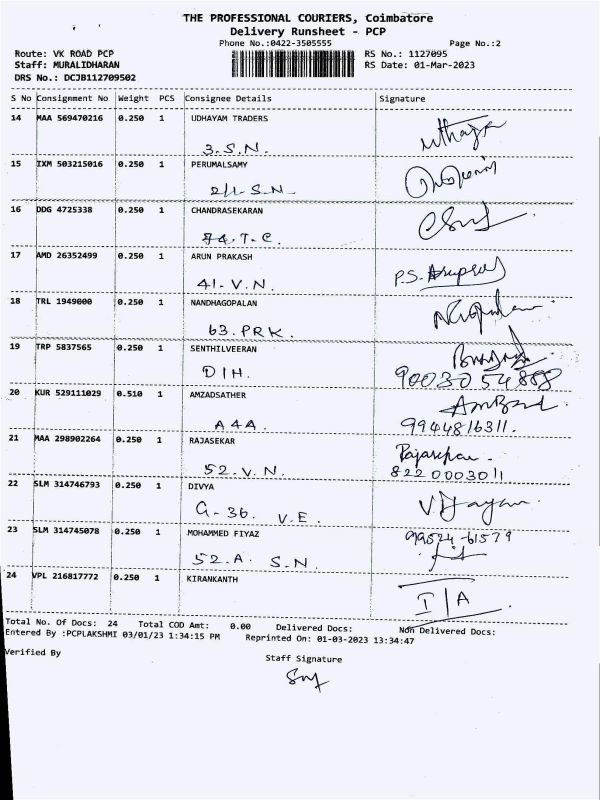 THE PROFESSIONAL COURIERS, Coimbatore
Delivery Runsheet - PCP
Phone No.:0422-3505555 Page No.:2
Route: VK ROAD PCP RS No.: 1127095
Staff: MURALIDHARAN RS Date: 01-Mar-2023
DRS No.: DCJB112709502
S No Consignment No Weight PCS Consignee Details Signature
14 MAA 569470216 0.250 1 UDHAYAM TRADERS
3. S.N.
15 IXM 503215016 0.250 1 PERUMALSAMY
2/1- S.N.
16 DDG 4725338 0.250 1 CHANDRASEKARAN
74. T-C.
17 AMD 26352499 0.250 1 ARUN PRAKASH
41- V.N. P.S.
18 TRL 1949000 0.250 1 NANDHAGOPALAN
63. PRK.
19 TRP 5837565 0.250 1 SENTHILVEERAN
D/H.
20 KUR 529111029 0.510 1 AMZADSATHER
A 4A. 9944816311.
21 MAA 298902264 0.250 1 RAJASEKAR
52. V.N. 8220003011
22 SLM 314746793 0.250 1 DIVYA
G-36. V.E.
23 SLM 314745078 0.250 1 MOHAMMED FIYAZ 99524-61579
52.A. S.N.
24 VPL 216817772 0.250 1 KIRANKANTH
I/A.
Total No. Of Docs: 24 Total COD Amt: 0.00 Delivered Docs: Non Delivered Docs:
Entered By :PCPLAKSHMI 03/01/23 1:34:15 PM Reprinted On: 01-03-2023 13:34:47
Verified By
Staff Signature